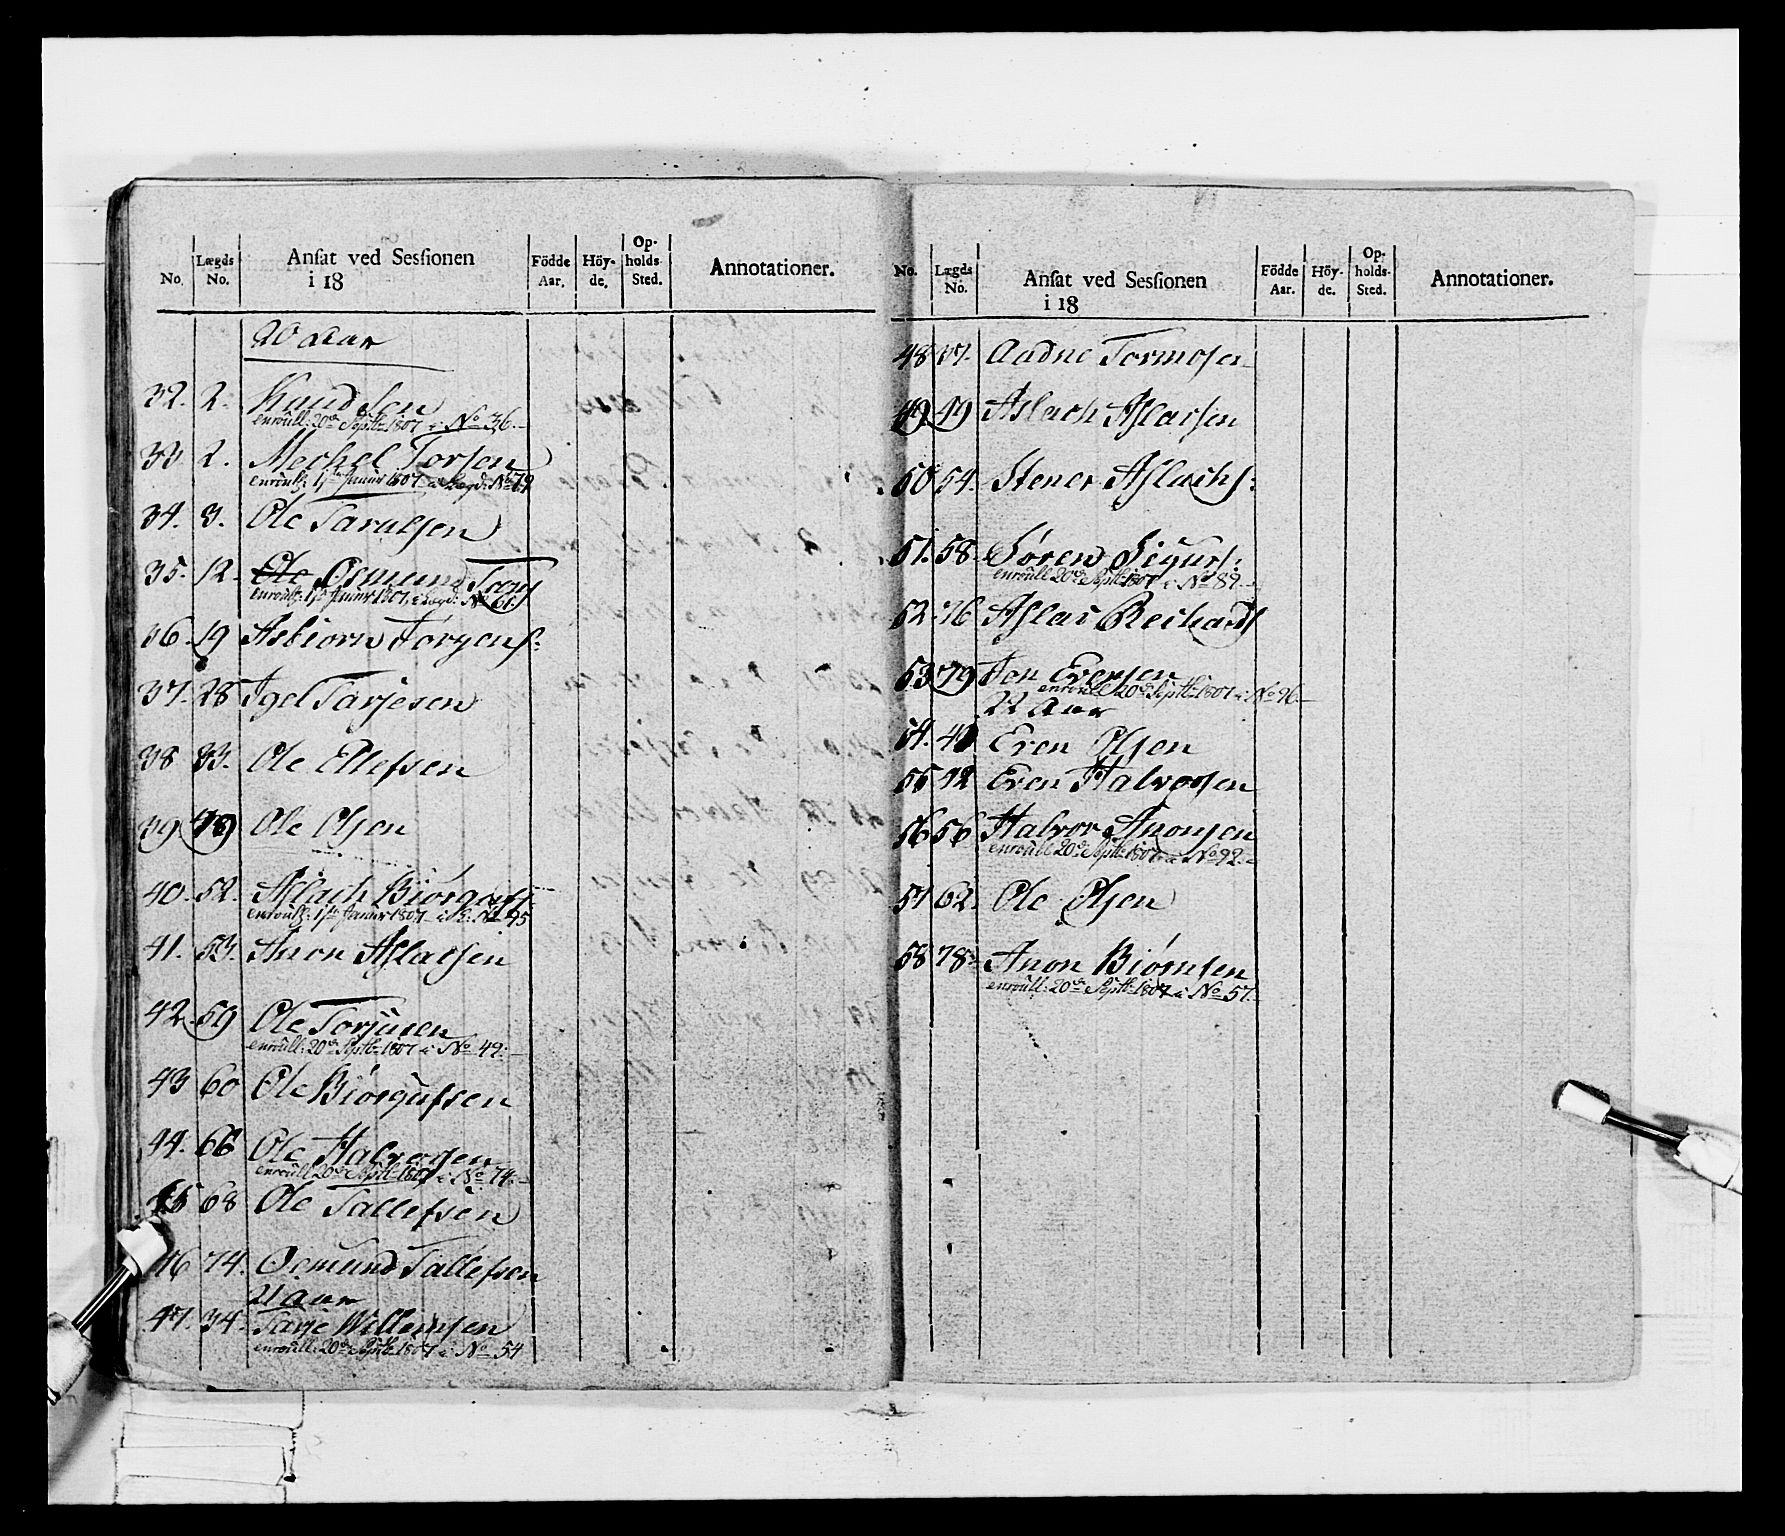 No. Lægds No. Ansat ved Sessionen i 18 Födde Aar. Höy-de. Op-holds-Sted. Annotationer.
20 Aar
32. 2. Knud Sen
enroull: 20de Septb: 1807 i No 36.
33 2. Mechel Torsen
enroull: 1ste Janur 1807 i Lægd: No 79
34. 3. Ole Tarulsen
35. 12. Ole Osmund Tarj
enroull: 1ste Janur 1807 i Lægd: No 61.
36. 19 Asbiorn Jorgens:
37. 28 Igel Tarjesen
38 33. Ole Ellefsen
39 Ole Olsen
40. 52. Aslach Biorguls:
enroull: 1ste Janur 1807 No 95
41. 53. Anon Aslacsen
42. 59 Ole Torjusen
enroull: 20de Septb: 1807 i No 49.
43 60 Ole Biörgufsen
44. 66 Ole Halvorsen
enroull 20de Septb: 1807 i No 74.
45 68 Ole Tallefsen
46 74. Osmund Tallefsen
21 Aar
47. 34. Tarje Willemsen
enroull: 20de Septb: 1807 i No 54
No. Lægds No. Ansat ved Sessionen i 18 Födde Aar. Höy-de. Op-holds-Sted. Annotationer.
48 37. Aadne Tormosen
49 49 Aslach Aslacsen
50 54. Stener Aslachs:
51. 58. Sören Sigurs:
enroull 20de Septb: 1807 i No 89.
52. 76 Aslac Reihards
53 79 Jon Evensen
enroull 20de Septb: 1807 i No 96.
22 Aar
54. Even Olsen
55 42 Even Halvorsen
56 56 Halvor Anonsen
enroull 20de Septb: 1807 i No 92.
57 62. Ole Olsen
58 78. Anon Biörnsen
enroull: 20de Septb: 1807 i No 57.